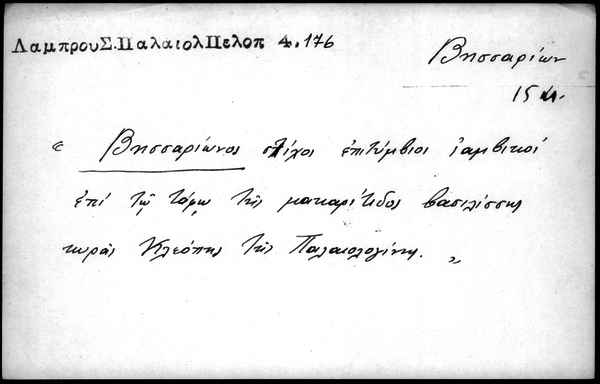 ΛαμπρουΣ.ΠαλαιολΠελοπ 4.176
Βησσαρίων
15 αι.
« Βησσαρίωνος στίχοι ἐπιτύμβιοι ἰαμβικοί
ἐπί τῷ τάφῳ τῆς μακαρίτιδος βασιλίσσης
κυρᾶς Κλεόπης τῆς Παλαιολογίνης. »